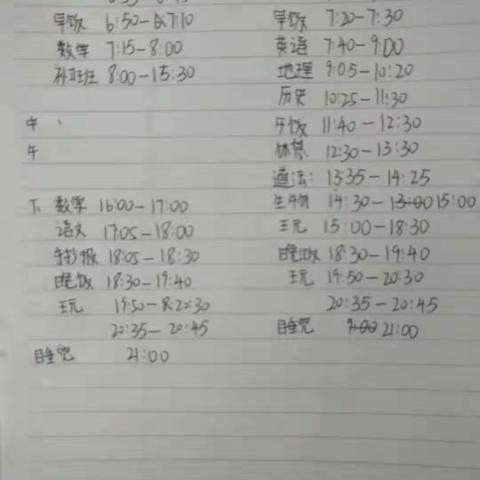 早饭 6:50-7:10
数学 7:15-8:00
补习班 8:00-15:30
午
午
下 数学 16:00-17:00
语文 17:05-18:00
手抄报 18:05-18:30
晚饭 18:30-19:40
玩 19:50-20:30
20:35-20:45
睡觉 21:00
早饭 7:20-7:30
英语 7:40-9:00
地理 9:05-10:20
历史 10:25-11:30
午饭 11:40-12:30
休息 12:30-13:30
道法: 13:35-14:25
生物 14:30-15:00
玩 15:00-18:30
晚饭 18:30-19:40
玩 19:50-20:30
20:35-20:45
睡觉 21:00